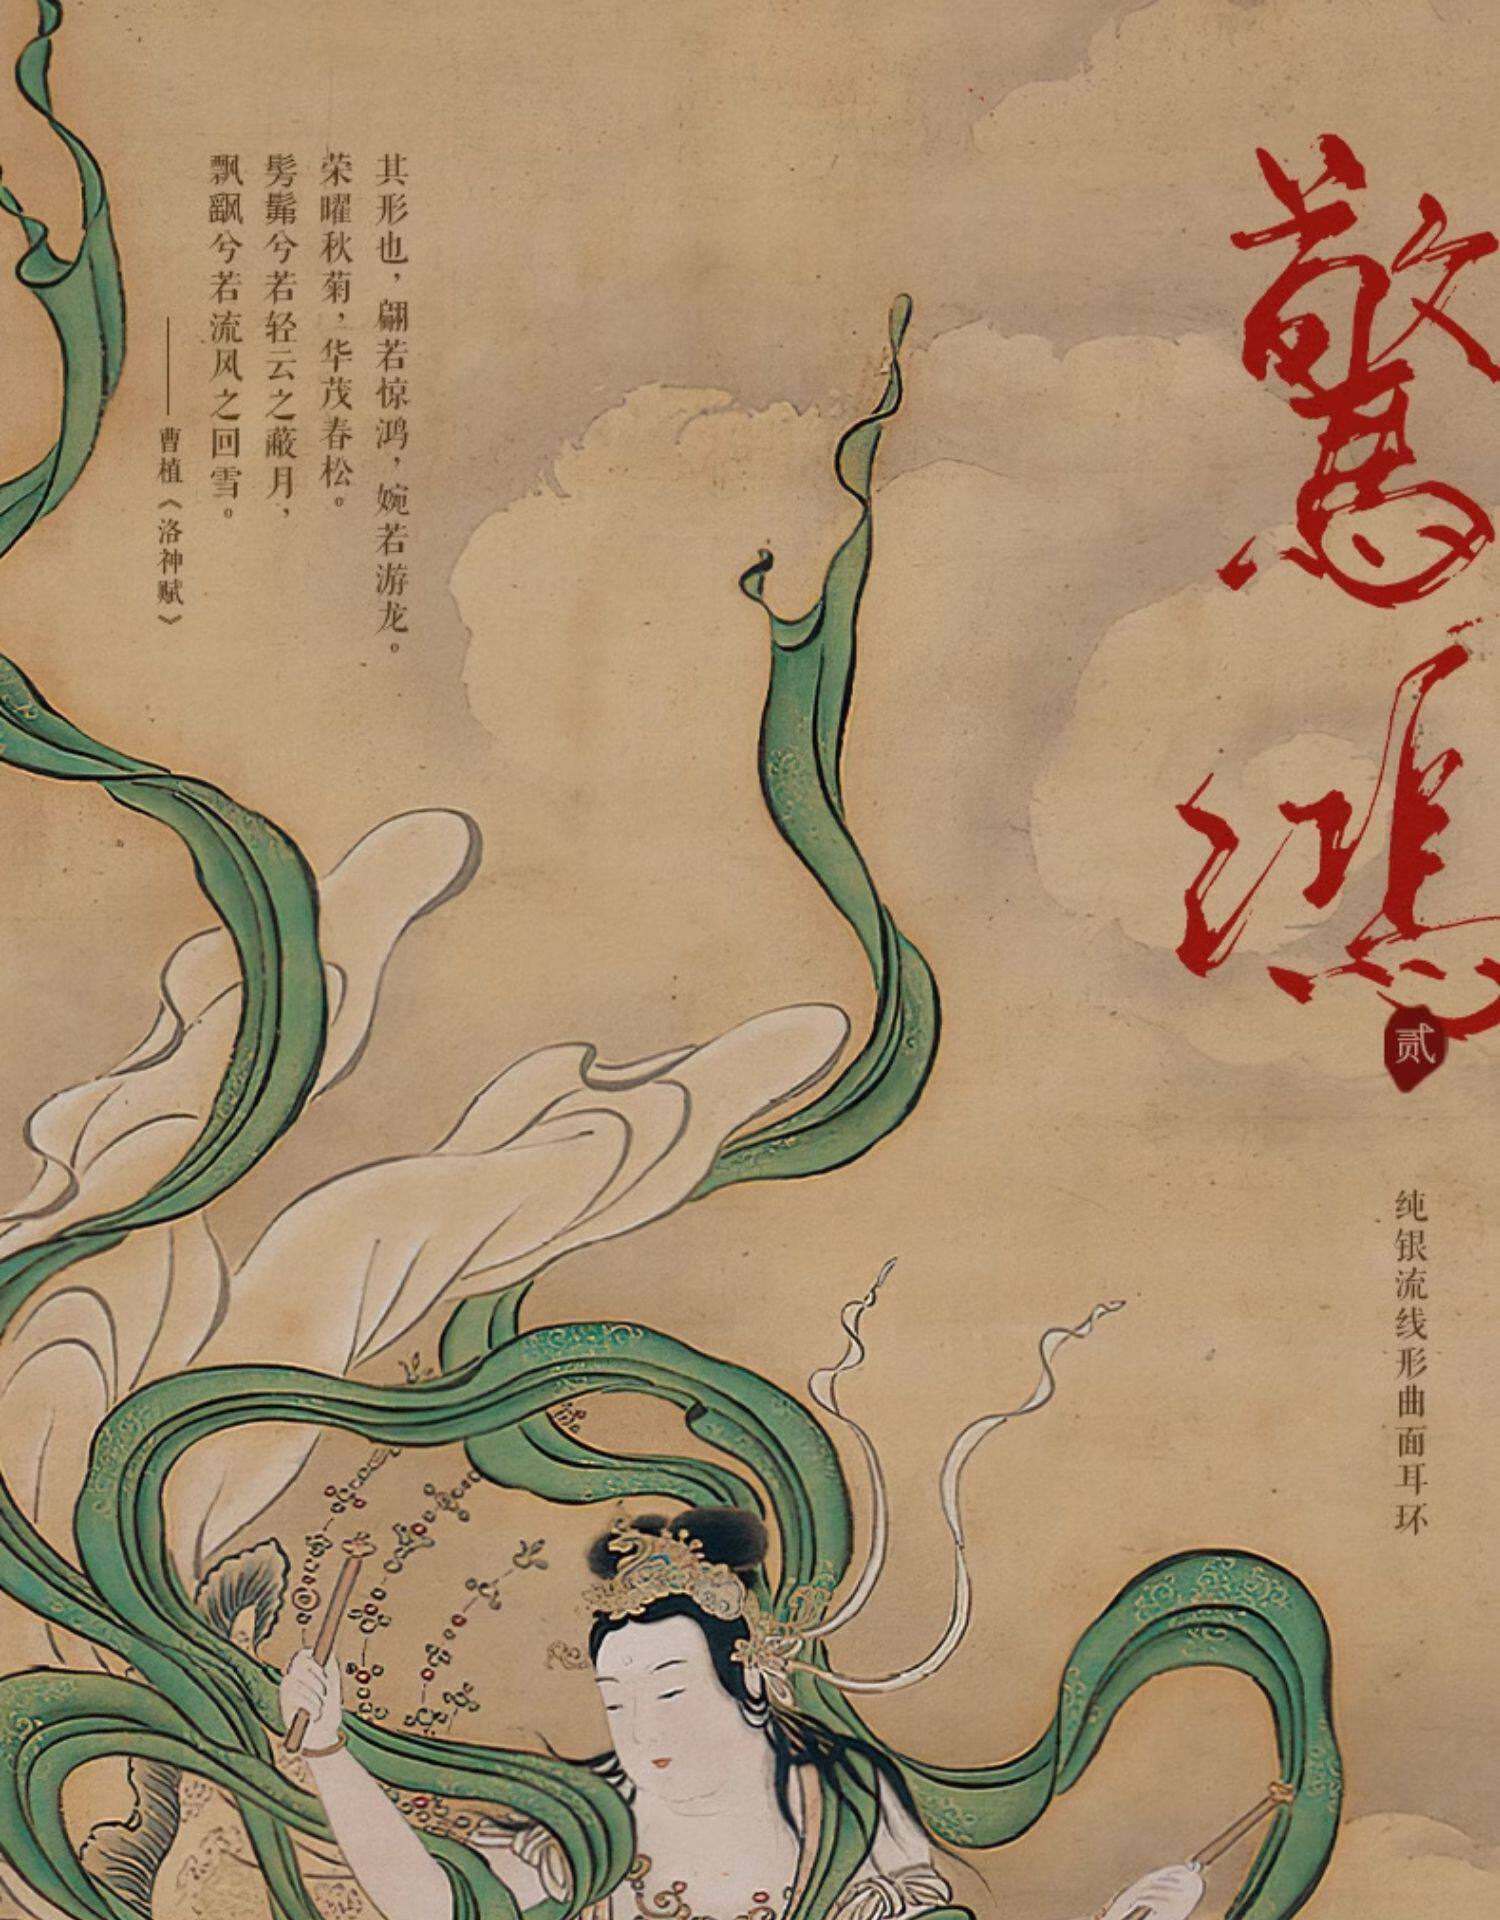 驚鸿
贰
纯银流线形曲面耳环
其形也，翩若惊鸿，婉若游龙。
荣曜秋菊，华茂春松。
髣髴兮若轻云之蔽月，
飘飖兮若流风之回雪。
——曹植《洛神赋》